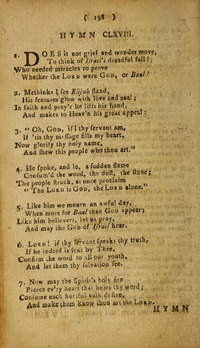 ( 198 )
HYMN CLXVIII.
1. DOES it not grief and wonder move,
To think of Israel's dreadful fall?
Who needed miracles to prove
Whether the LORD were GOD, or Baal!
2. Methinks I see Elijah stand,
His features glow with love and zeal;
In faith and pray'r he lifts his hand,
And makes to Heav'n his great appeal:
3. "Oh, GOD, if I thy servant am,
If 'tis thy message fills my heart,
Now glorify thy holy name,
And shew this people who thou art."
4. He spoke, and lo, a sudden flame
Consum'd the wood, the dust, the stone;
The people struck, at once proclaim
"The LORD is GOD, the LORD alone."
5. Like him we mourn an awful day,
When more for Baal than GOD appear;
Like him believers, let us pray,
And may the GOD of Israel hear.
6. LORD! if thy servant speaks thy truth,
If he indeed is sent by Thee,
Confirm the word to all our youth,
And let them thy salvation see.
7. Now may thy Spirit's holy fire
Pierce ev'ry heart that hears thy word;
Consume each hurtful vain desire,
And make them know thou art the LORD.
HYMN